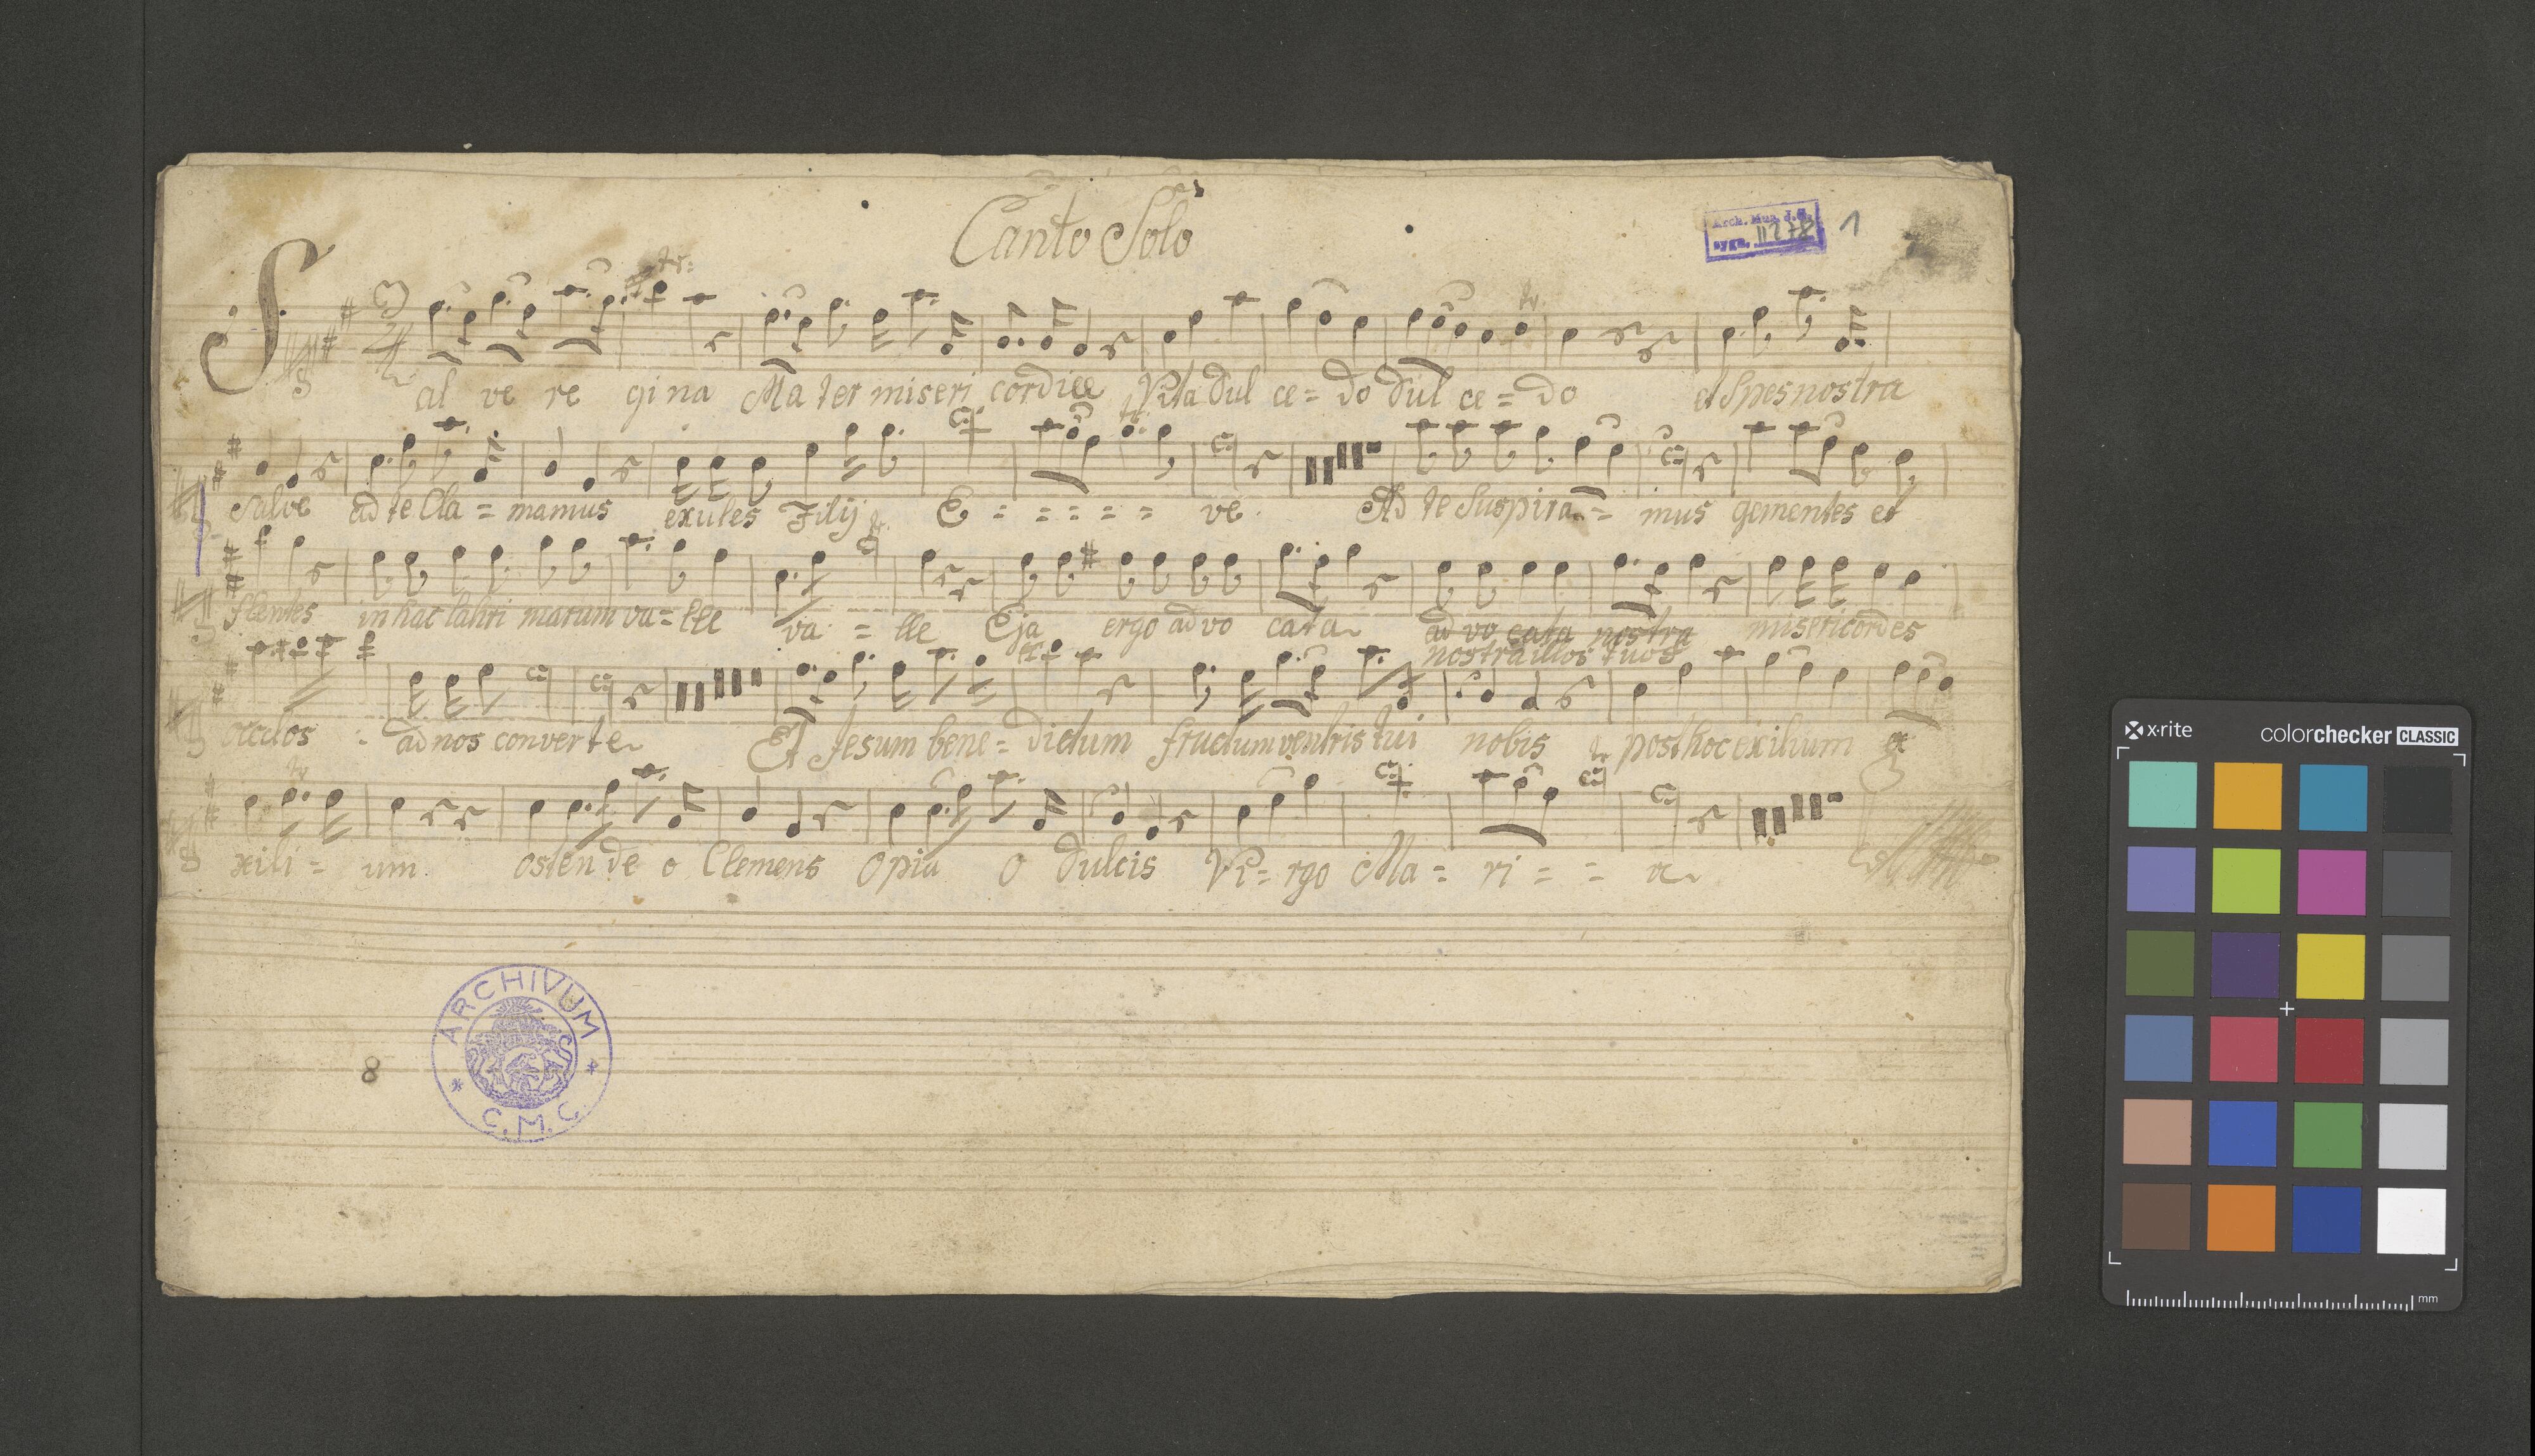 Canto Solo
Arch. Mus. J.G.
sygn. II 278
1
Salve re gi na Ma ter miseri cordiæ Vita dul ce = do dul ce = do et Spes nostra
Salve ad te Cla = mamus exules Filij E = = = = = ve. Ad te Suspira = mus gementes et
flentes in hac lahri marum va = lle va = lle Eja ergo ad vo cata ad vo cata nostra misericordes
nostra illos tuos
occulos = ad nos converte Et Jesum bene = dictum fructum ventris tui nobis post hoc exilium e
xili = um ostende o Clemens O pia O dulcis Vi = rgo Ma = ri = = a
8
ARCHIVUM
C.M.C.
x·rite
colorchecker CLASSIC
mm